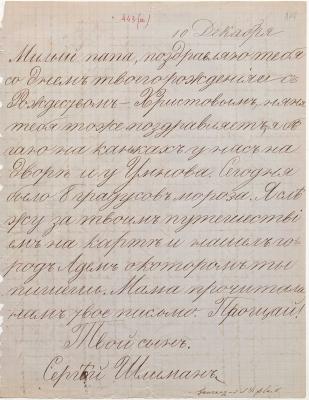 443 (м)
10 Декабря
Милый папа, поздравляю тебя
со днемъ твоего рожденяе и съ
Рождествомъ – Христовымъ, няня
тебя тоже поздравляетъ, я лѣ
таю на канкахъ у насъ на
дворѣ и у Умнова. Сегодня
было 8 градусовъ мороза. Я слѣ
жу за твоимъ путешестві
емъ на картѣ и нашелъ го
родъ Адемъ о которомъ ты
пишешь. Мама прочитала
намъ твое письмо. Прощай!
Твой сынъ.
Сергѣй Шлиманъ.